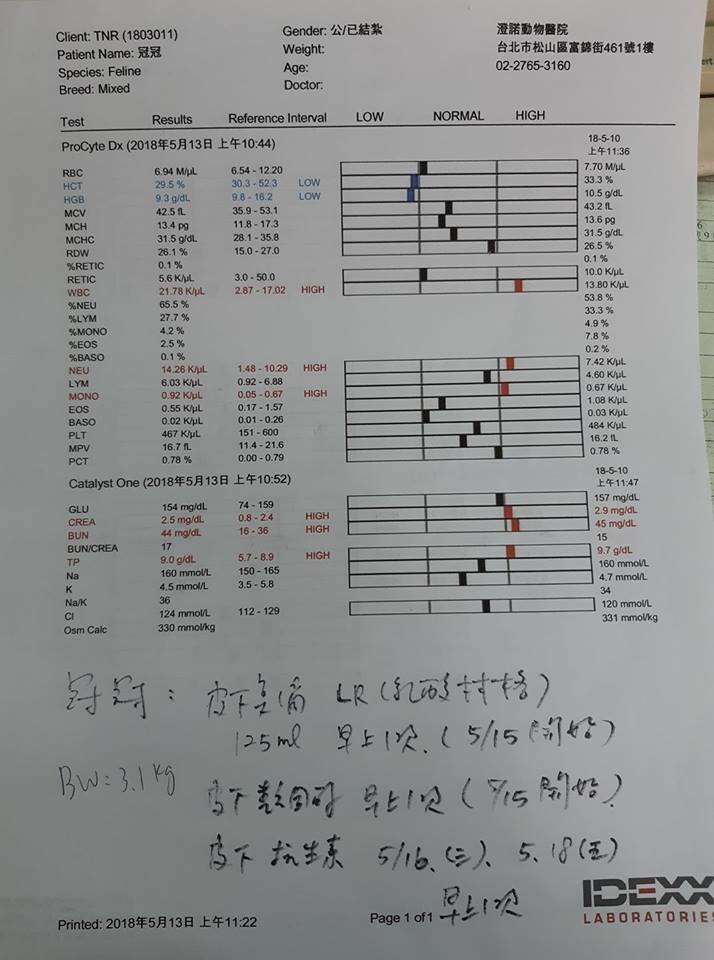 Client: TNR (1803011) Gender: 公/已結紮 澄諾動物醫院
Patient Name: 冠冠 Weight: 台北市松山區富錦街461號1樓
Species: Feline Age: 02-2765-3160
Breed: Mixed Doctor:
Test Results Reference Interval LOW NORMAL HIGH
ProCyte Dx (2018年5月13日 上午10:44) 18-5-10 上午11:36
RBC 6.94 M/µL 6.54 - 12.20 7.70 M/µL
HCT 29.5 % 30.3 - 52.3 LOW 33.3 %
HGB 9.3 g/dL 9.8 - 16.2 LOW 10.5 g/dL
MCV 42.5 fL 35.9 - 53.1 43.2 fL
MCH 13.4 pg 11.8 - 17.3 13.6 pg
MCHC 31.5 g/dL 28.1 - 35.8 31.5 g/dL
RDW 26.1 % 15.0 - 27.0 26.5 %
%RETIC 0.1 % 0.1 %
RETIC 5.6 K/µL 3.0 - 50.0 10.0 K/µL
WBC 21.78 K/µL 2.87 - 17.02 HIGH 13.80 K/µL
%NEU 65.5 % 53.8 %
%LYM 27.7 % 33.3 %
%MONO 4.2 % 4.9 %
%EOS 2.5 % 7.8 %
%BASO 0.1 % 0.2 %
NEU 14.26 K/µL 1.48 - 10.29 HIGH 7.42 K/µL
LYM 6.03 K/µL 0.92 - 6.88 4.60 K/µL
MONO 0.92 K/µL 0.05 - 0.67 HIGH 0.67 K/µL
EOS 0.55 K/µL 0.17 - 1.57 1.08 K/µL
BASO 0.02 K/µL 0.01 - 0.26 0.03 K/µL
PLT 467 K/µL 151 - 600 484 K/µL
MPV 16.7 fL 11.4 - 21.6 16.2 fL
PCT 0.78 % 0.00 - 0.79 0.78 %
Catalyst One (2018年5月13日 上午10:52) 18-5-10 上午11:47
GLU 154 mg/dL 74 - 159 157 mg/dL
CREA 2.5 mg/dL 0.8 - 2.4 HIGH 2.9 mg/dL
BUN 44 mg/dL 16 - 36 HIGH 45 mg/dL
BUN/CREA 17 15
TP 9.0 g/dL 5.7 - 8.9 HIGH 9.7 g/dL
Na 160 mmol/L 150 - 165 160 mmol/L
K 4.5 mmol/L 3.5 - 5.8 4.7 mmol/L
Na/K 36 34
Cl 124 mmol/L 112 - 129 120 mmol/L
Osm Calc 330 mmol/kg 331 mmol/kg
冠冠: 皮下 LR (乳酸林格)
125ml 早上1次. (5/15 開始)
BW: 3.1kg
皮下 早上1次 (5/15 開始).
皮下 抗生素 5/16.(三)、5.18(五)
早上1次
IDEXX
LABORATORIES
Printed: 2018年5月13日 上午11:22 Page 1 of 1